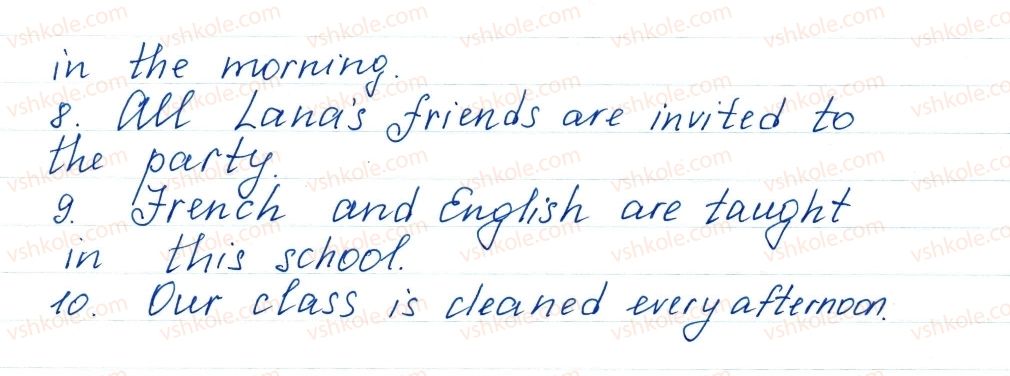 in the morning.
8. All Lana's friends are invited to
the party.
9. French and English are taught
in this school.
10. Our class is cleaned every afternoon.